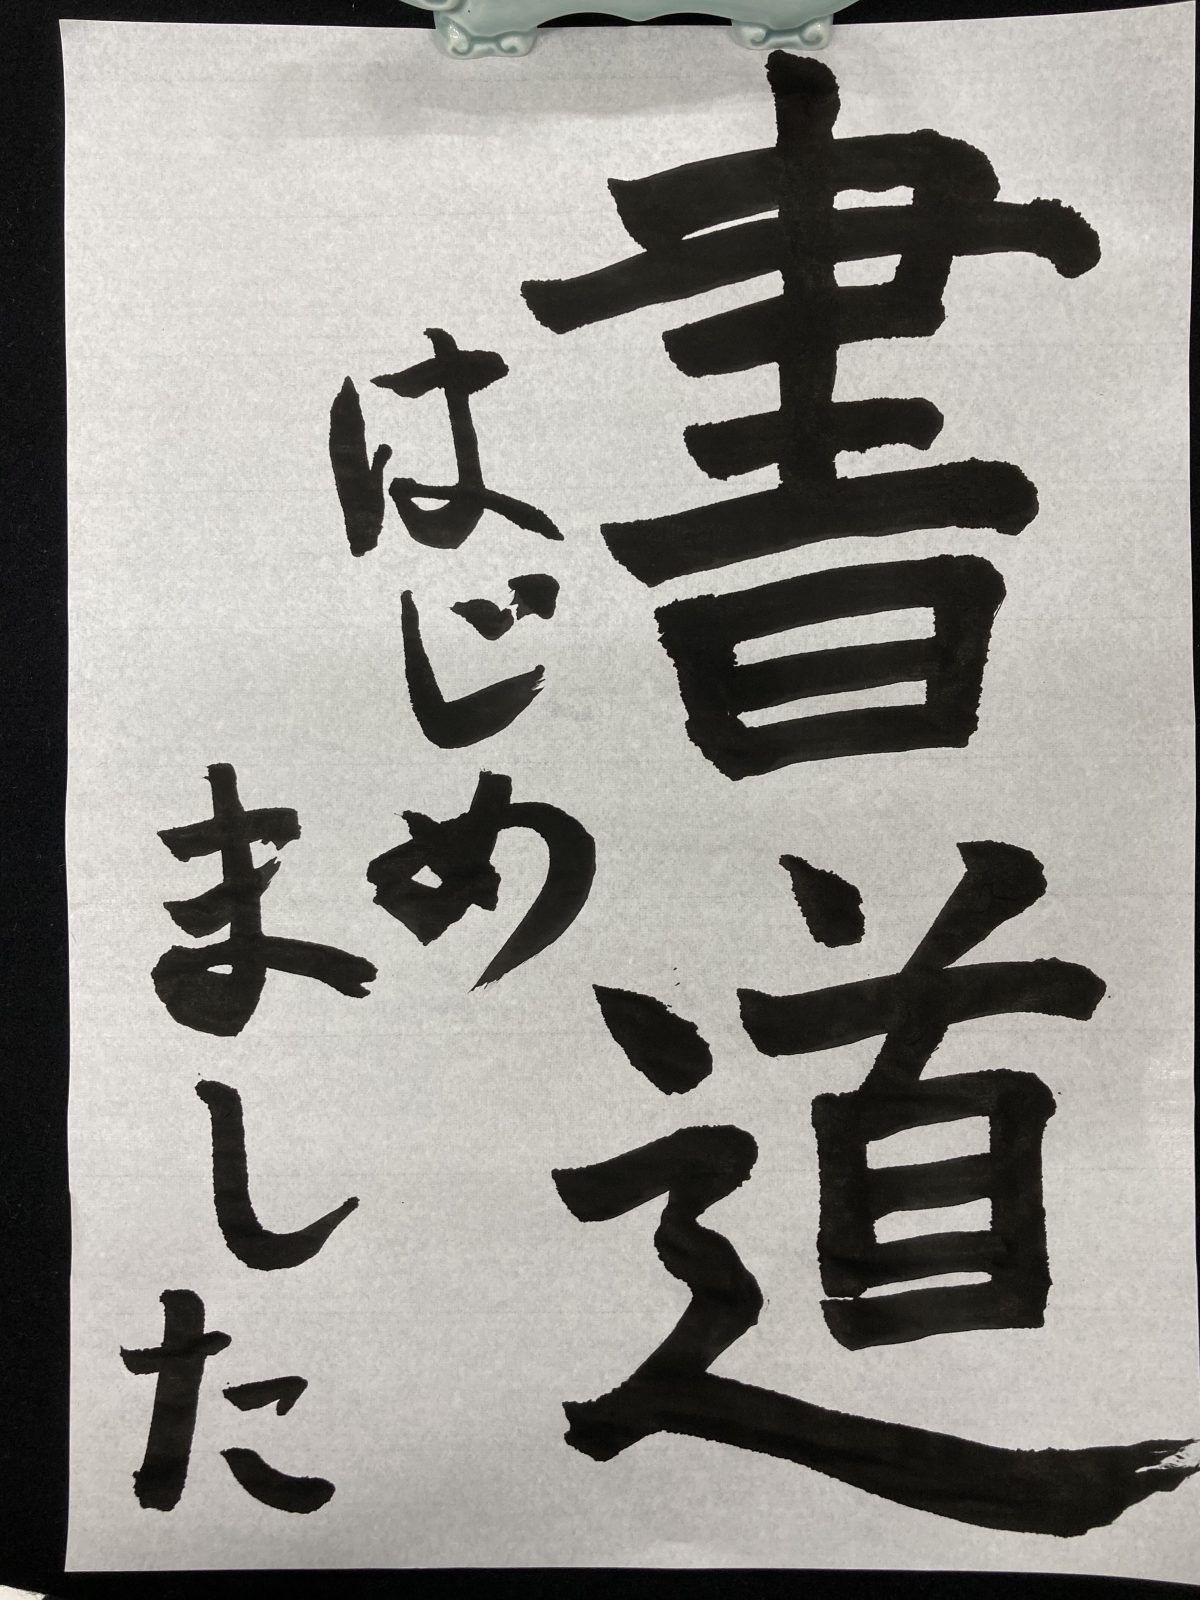 書道
はじめ
ました